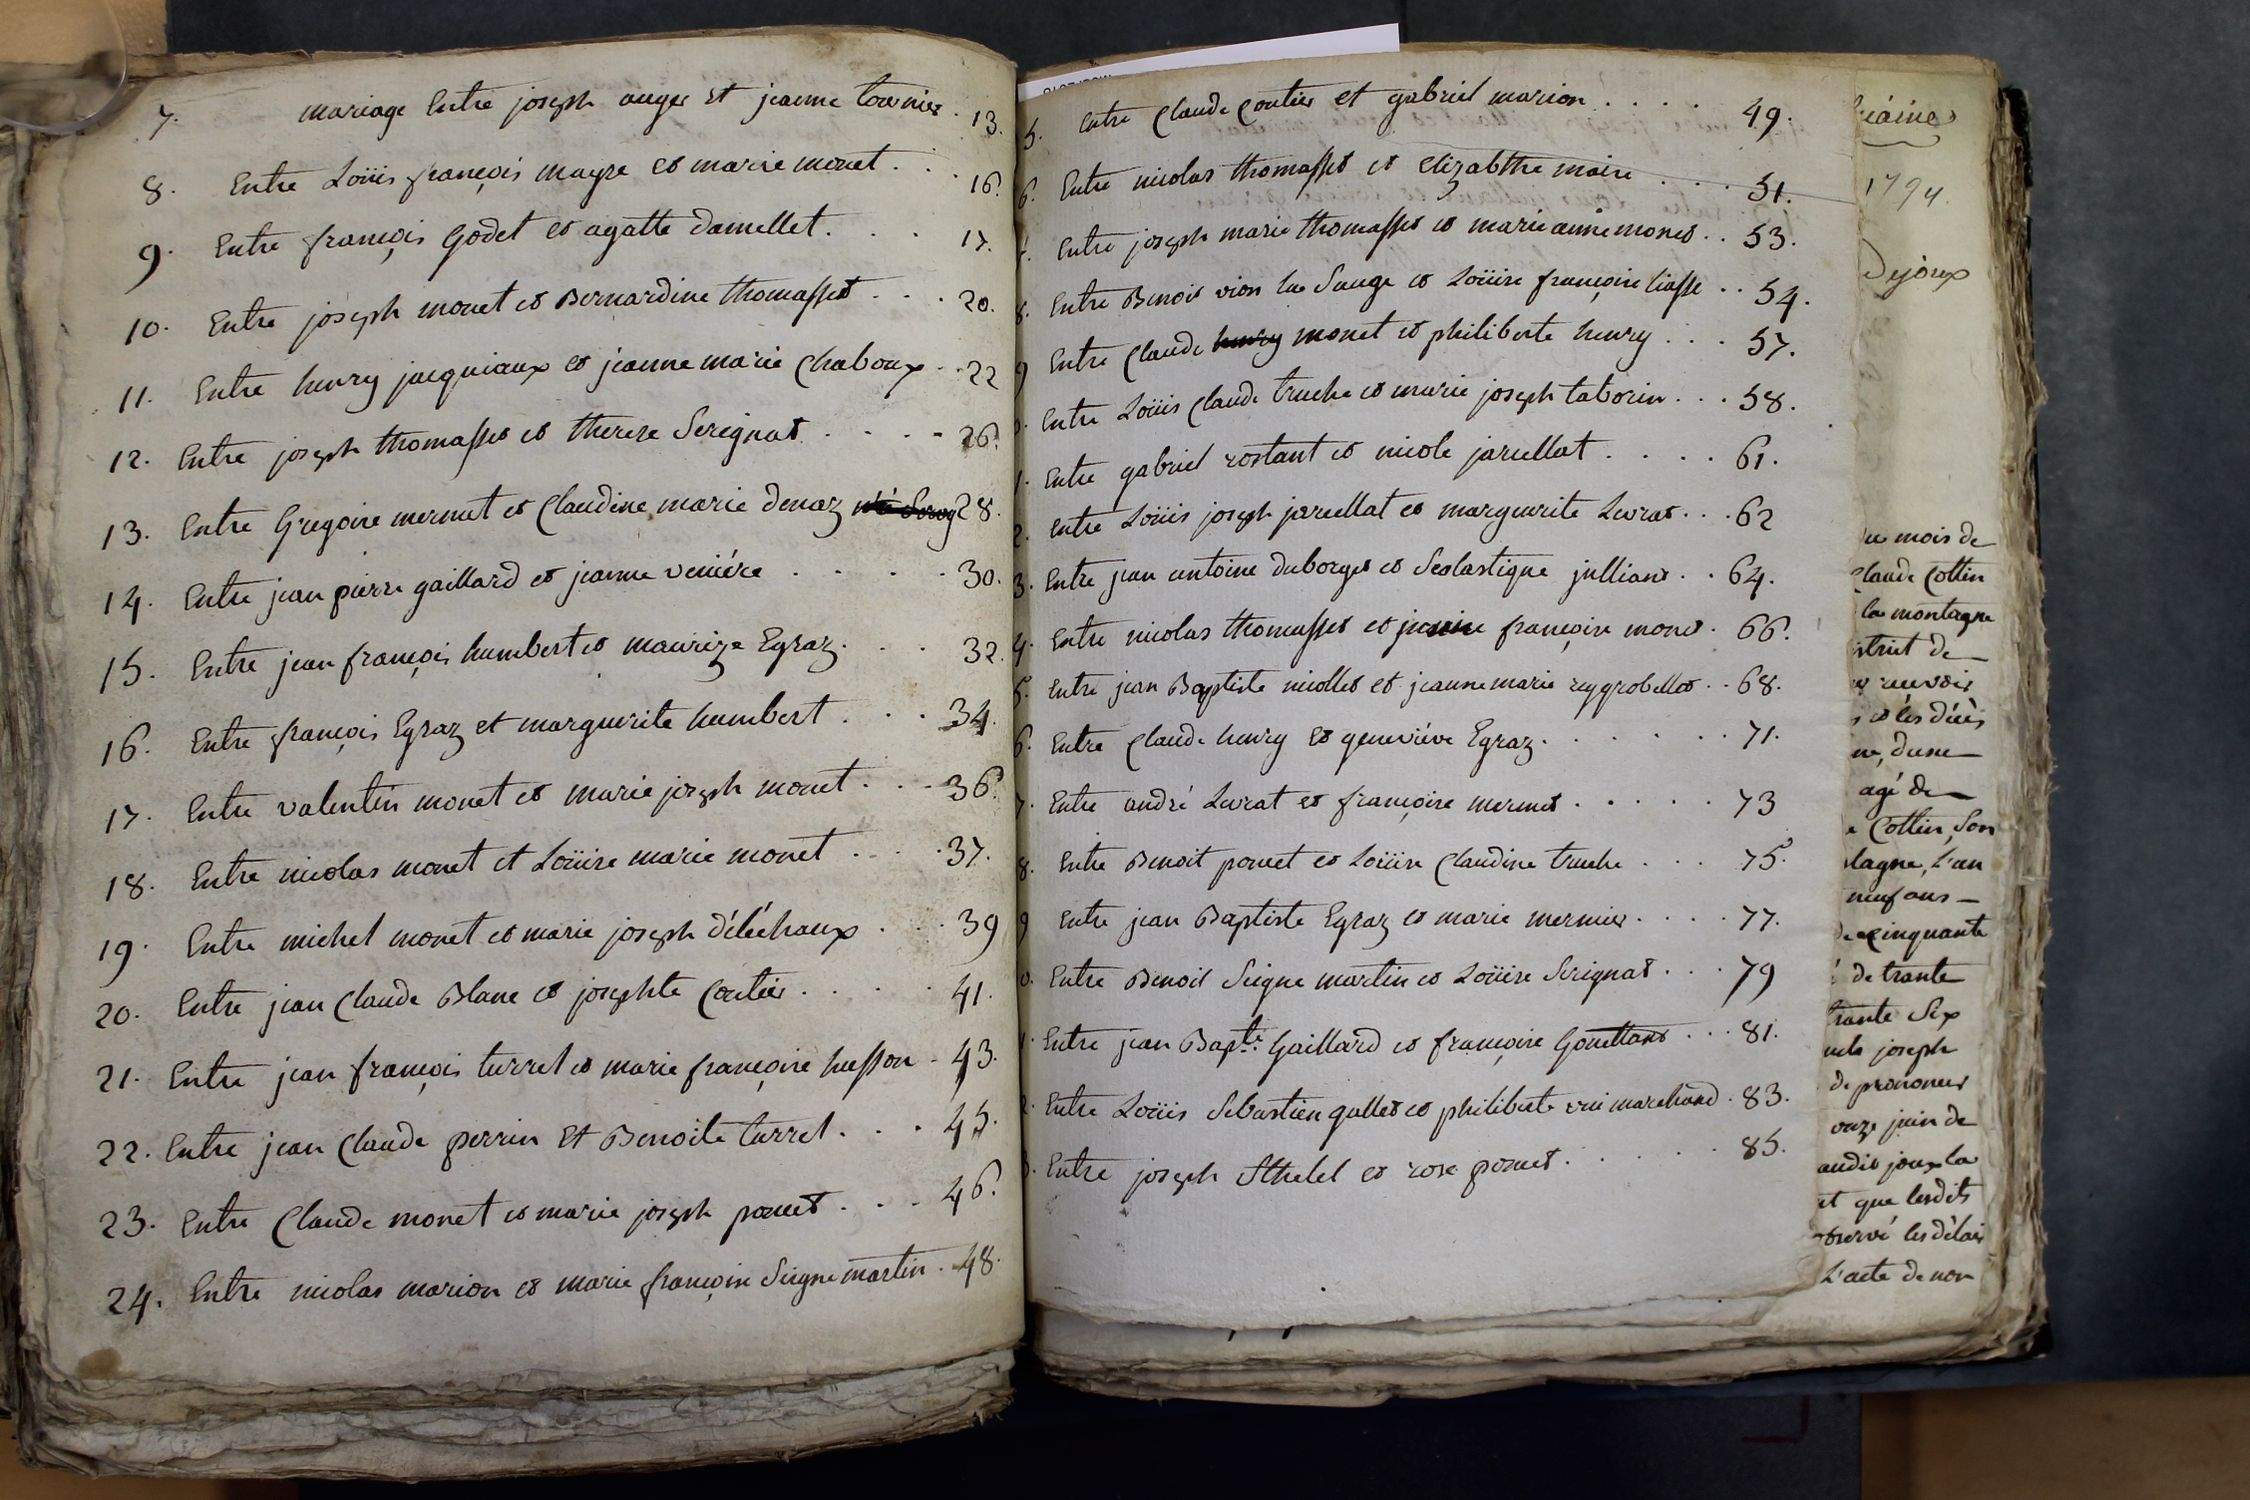 7. mariage Entre joseph auger et jeanne tournier . 13.
8. Entre Loüis françois mayre et marie monet . . . 16.
9. Entre françois Godet et agatte damellet . . . 17.
10. Entre joseph monet et Bernardine thomasset . . . 20.
11. Entre henry jacquiaux et jeanne marie Chaboux . . 22
12. Entre joseph thomasset et therese Serignat . . . . 26.
13. Entre Gregoire mermet et Claudine marie denaz 28.
14. Entre jean pierre gaillard et jeanne veniére . . . . . 30.
15. Entre jean françois humbert et maurize Egraz . . . 32.
16. Entre françois Egraz et marguerite humbert . . . 34.
17. Entre valentin monet et marie joseph monet . . . 36.
18. Entre nicolas monet et Loüise marie monet . . . 37.
19. Entre michel monet et marie joseph déléchaux . . . 39
20. Entre jean Claude Blanc et josephte Coutier . . . . 41.
21. Entre jean françois turrel et marie françoise husson . 43.
22. Entre jean Claude perrin et Benoite turrel . . . 45.
23. Entre Claude monet et marie joseph poncet . . . 46.
24. Entre nicolas marion et marie françoise Seigne martin . 48.
5. Entre Claude Coutier et gabriel marion . . . . 49.
6. Entre nicolas thomasset et elizabthe maire . . . . 51.
Entre joseph marie thomasset et marie anne monet . . 53.
8. Entre Benoit vion la Sauge et Loüise françoise liasse . . 54.
9 Entre Claude henry monet et philiberte henry . . . 57.
0. Entre Loüis Claude truche et marie joseph taborin . . . 58.
1. Entre gabriel rostant et nicole jarcellat . . . . 61.
2. Entre Loüis joseph jarcellat et marguerite Levrat . . . 62
3. Entre jean antoine duborget et Scolastique julliard . . 64.
4. Entre nicolas thomasset et françoise monet . 66.
5. Entre jean Baptiste niollet et jeanne marie reygrobellet . . 68.
6. Entre Claude henry et geneviéve Egraz . . . . . . . 71.
7. Entre andré Levrat et françoise mermet . . . . . 73
8. Entre Benoit poncet et Loüise Claudine truche . . . 75.
9 Entre jean Baptiste Egraz et marie mermier . . . . 77.
0. Entre Benoit Seigne martin et Loüise Serignat . . . 79
1. Entre jean Bapte. Gaillard et françoise Gouettand . . . 81.
2. Entre Loüis Sebastien gallet et philiberte vui marchand . 83.
3. Entre joseph Sthelel et rose poncet . . . . . . 85.
1794.
Dejoux
du mois de
Claude Cottin
la montagne
strict de
recevoir
et les décès
ne, dune
agé de
Cottin, Son
tagne, L'an
neuf ans
de cinquante
de trante
trante Six
joseph
de prononcer
onze juin de
audit joux la
et que lesdits
observé les délais
L'acte de non